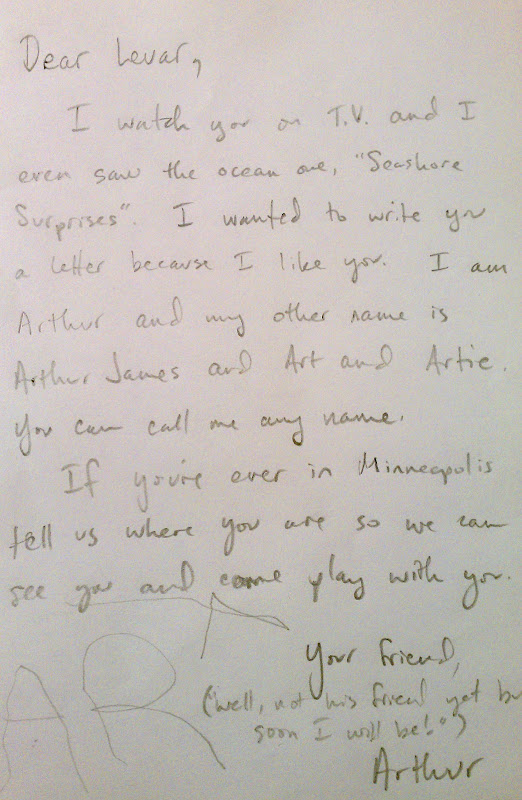 Dear Levar,
I watch you on T.V. and I
even saw the ocean one, "Seashore
Surprises". I wanted to write you
a letter because I like you. I am
Arthur and my other name is
Arthur James and Art and Artie.
You can call me any name.
If you're ever in Minneapolis
tell us where you are so we can
see you and come play with you.
Your friend,
("Well, not his friend yet but
soon I will be!")
Arthur
ART